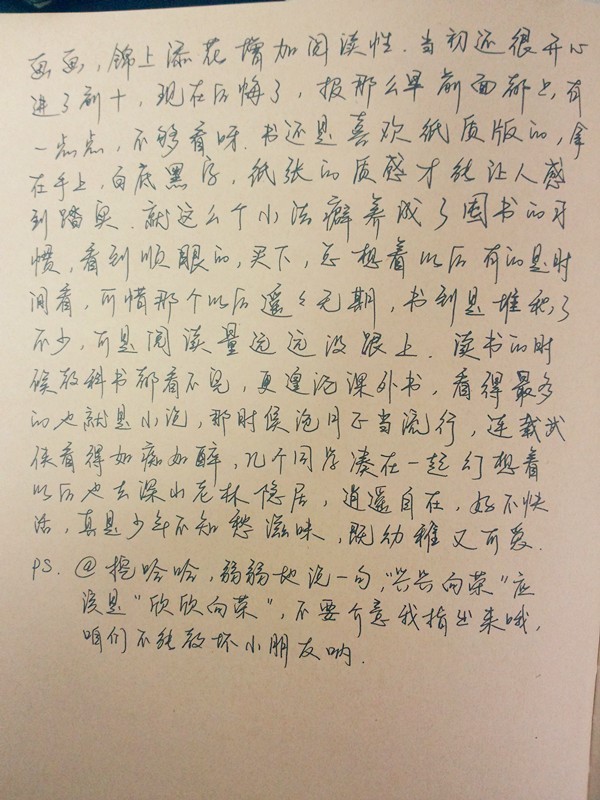 画画，锦上添花增加阅读性.当初还很开心
进了前十，现在后悔了，报那么早前面都占，有
一点点，不够看呀.书还是喜欢纸质版的，拿
在手上，白底黑字，纸张的质感才能让人感
到踏实.就这么个小洁癖养成了囤书的习
惯，看到顺眼的，买下，总想着以后有的是时
间看，可惜那个以后遥遥无期，书到是堆积了
不少，可是阅读量远远没跟上.读书的时
候教科书都看不完，更遑论课外书，看得最多
的也就是小说，那时候流月正当流行，连载武
侠看得如痴如醉，几个同学凑在一起幻想着
以后也去深山老林隐居，逍遥自在，好不快
活，真是少年不知愁滋味，既幼稚又可爱.
PS.@挖哈哈，弱弱地说一句，"兴兴向荣"应
该是"欣欣向荣"，不要介意我指出来哦，
咱们不能教坏小朋友呐.